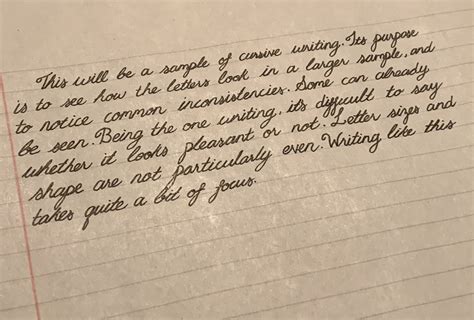 This will be a sample of cursive writing. Its purpose
is to see how the letters look in a larger sample, and
to notice common inconsistencies. Some can already
be seen. Being the one writing, it's difficult to say
whether it looks pleasant or not. Letter sizes and
shape are not particularly even. Writing like this
takes quite a bit of focus.